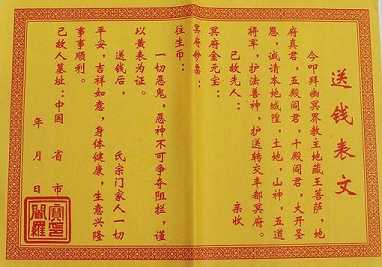 送钱表文
今叩拜幽冥界教主地藏王菩萨，地
府真君，五殿阎君，十殿阎君，大开圣
恩，诚请本地城隍，土地，山神，五道
将军，护法善神，护送转交丰都冥府。
已故先人：亲收
冥府金元宝：
冥府钞票：
往生币：
一切恶鬼，恶神不可争夺阻拦，谨
以黄表为证。
送钱后，氏宗门家人一切
平安，吉祥如意，身体健康，生意兴隆
事事顺利。
已故人墓址：中国 省 市
年 月 日